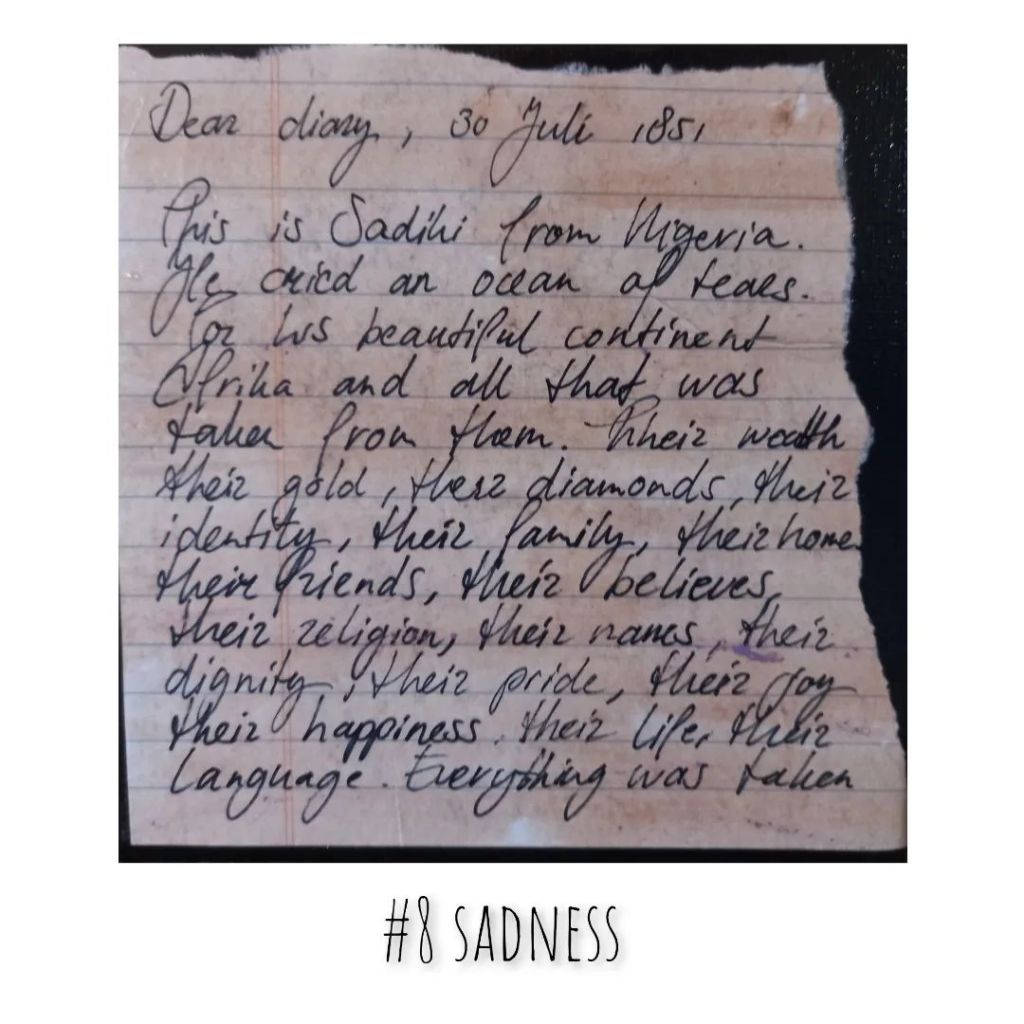 Dear diary, 30 Juli 1851
This is Sadiki from Nigeria.
He cried an ocean of tears.
For his beautiful continent
Afrika and all that was
taken from them. Their wealth
their gold, their diamonds, their
identity, their family, their home
their friends, their believes,
their religion, their names, their
dignity, their pride, their joy
their happiness, their life, their
language. Everything was taken
#8 SADNESS